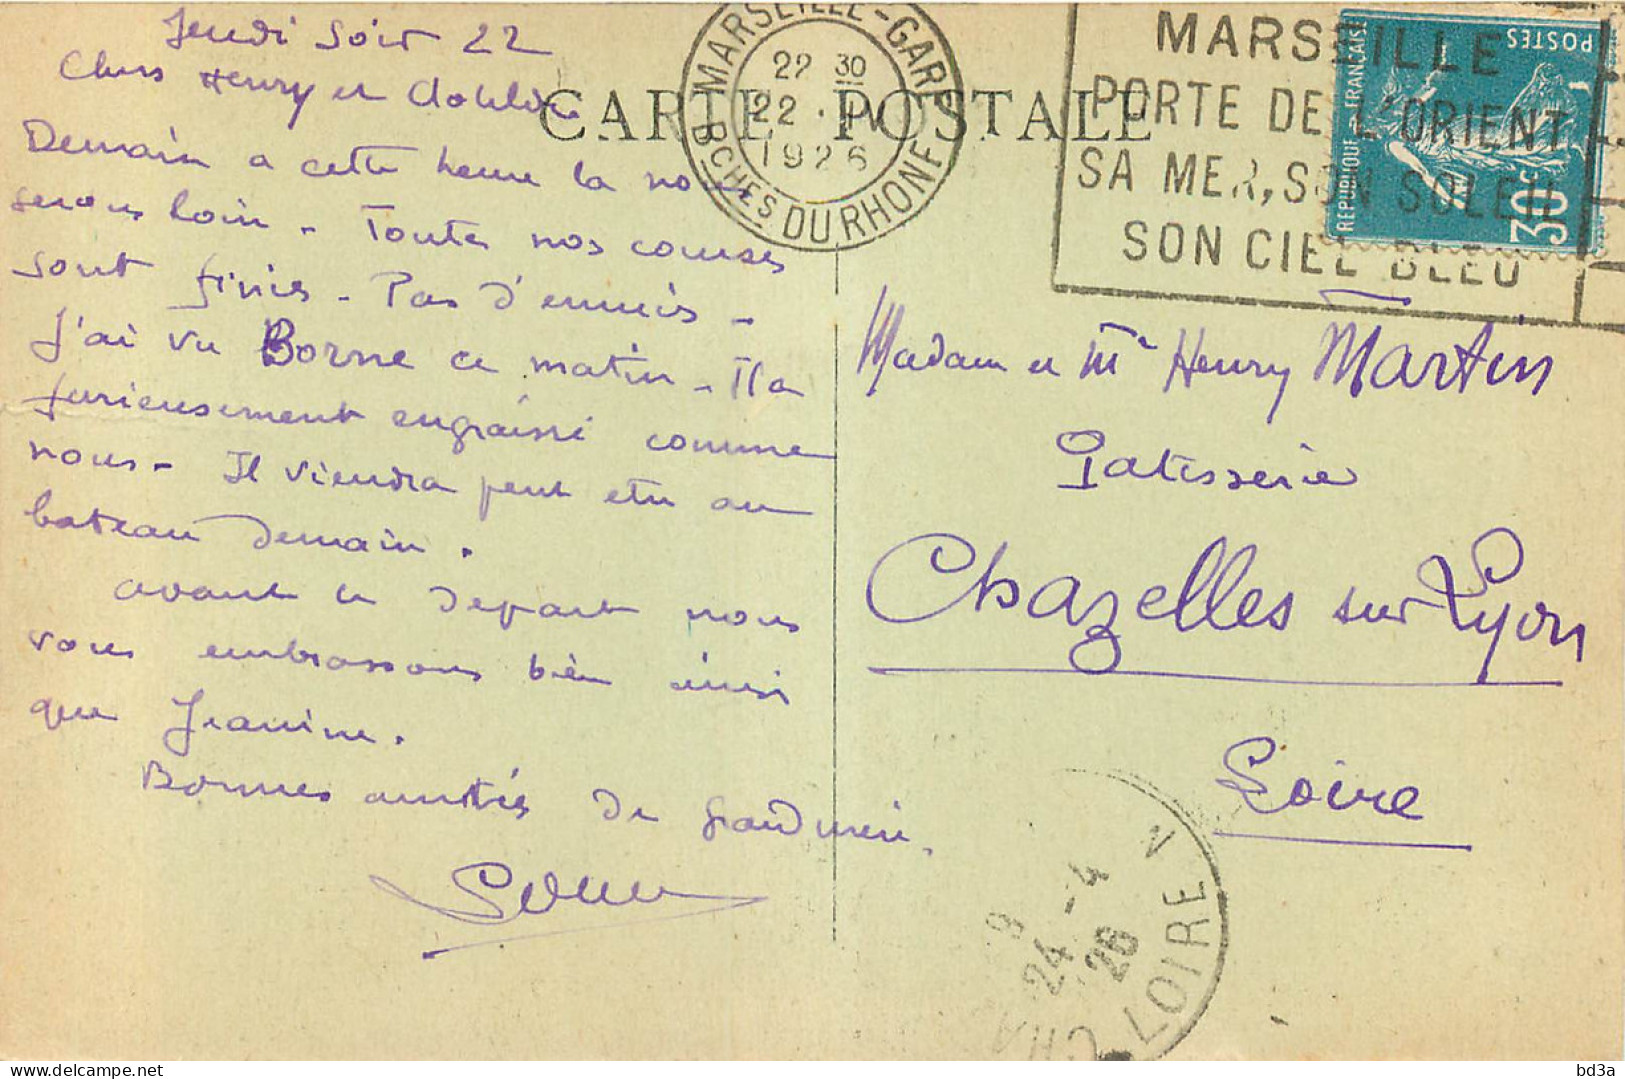 Jeudi Soir 22
Chers Henry et
Demain a cette heure la nous
serons loin - Toutes nos courses
sont finies - Pas d'ennuis -
J'ai vu Borne ce matin - Il a
furieusement engraissé comme
nous - Il viendra peut etre au
bateau demain.
avant le depart nous
vous embrassons bien ainsi
que Jeanine.
Bonnes amitiés de
CARTE POSTALE
MARSEILLE-GARE
22 30
22 . IV
1926
BCHES DU RHONE
MARSEILLE
PORTE DE L'ORIENT
SA MER, SON SOLEIL
SON CIEL BLEU
REPUBLIQUE FRANÇAISE
POSTES
30c
Madame et Mr Henry Martin
Patisserie
Chazelles sur Lyon
Loire
24-4
26
LOIRE
delcampe.net
bd3a